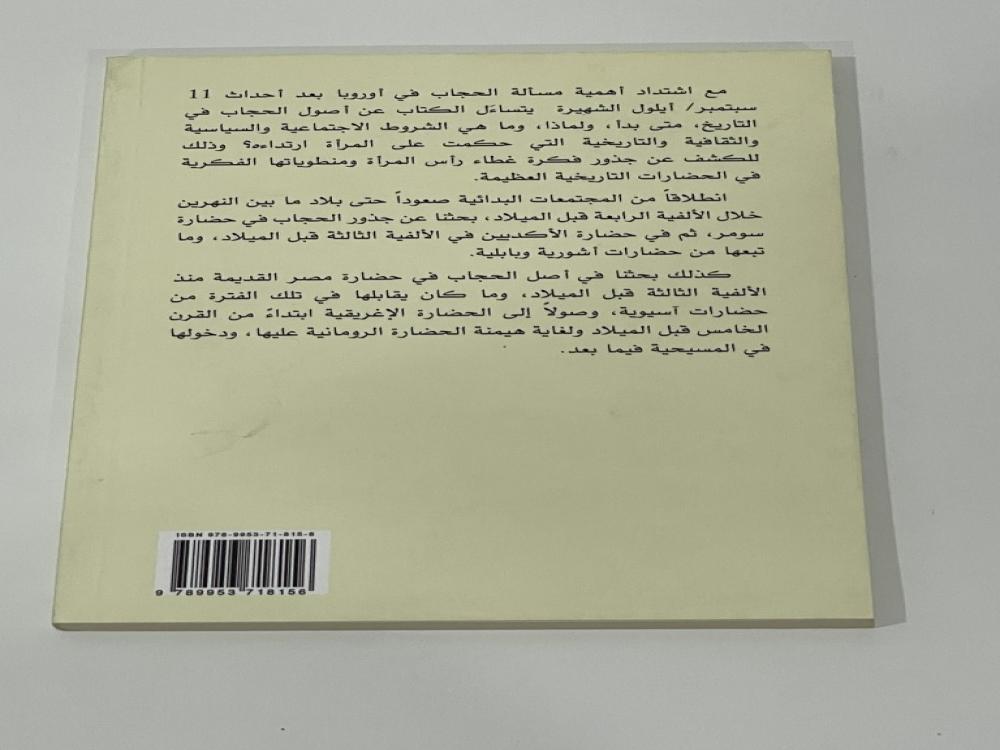 مع اشتداد أهمية مسألة الحجاب في أوروبا بعد أحداث 11
سبتمبر/ أيلول الشهيرة يتساءل الكتاب عن أصول الحجاب في
التاريخ، متى بدأ، ولماذا، وما هي الشروط الاجتماعية والسياسية
والثقافية والتاريخية التي حكمت على المرأة ارتداءه؟ وذلك
للكشف عن جذور فكرة غطاء رأس المرأة ومنطوياتها الفكرية
في الحضارات التاريخية العظيمة.
انطلاقاً من المجتمعات البدائية صعوداً حتى بلاد ما بين النهرين
خلال الألفية الرابعة قبل الميلاد، بحثنا عن جذور الحجاب في حضارة
سومر، ثم في حضارة الأكديين في الألفية الثالثة قبل الميلاد، وما
تبعها من حضارات آشورية وبابلية.
كذلك بحثنا في أصل الحجاب في حضارة مصر القديمة منذ
الألفية الثالثة قبل الميلاد، وما كان يقابلها في تلك الفترة من
حضارات آسيوية، وصولاً إلى الحضارة الإغريقية ابتداءً من القرن
الخامس قبل الميلاد ولغاية هيمنة الحضارة الرومانية عليها، ودخولها
في المسيحية فيما بعد.
ISBN 978-9953-71-815-6
9 789953 718156